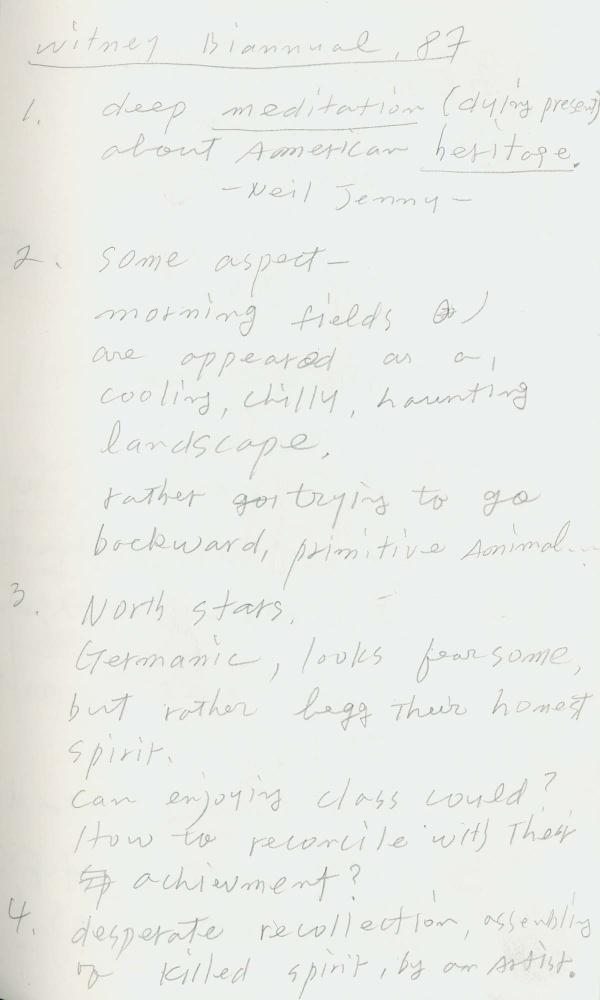 witney Biannual, 87
1. deep meditation (dying present)
about American heritage.
- Neil Jenny -
2. some aspect -
morning fields )
are appeared as a,
cooling, chilly, haunting
landscape,
rather trying to go
backward, primitive Animal...
3. North stars.
Germanic, looks fearsome,
but rather begg Their honest
spirit.
can enjoying class could?
How to reconcile with Their
achievment?
4. desperate recollection, assembling
of killed spirit, by an Artist.